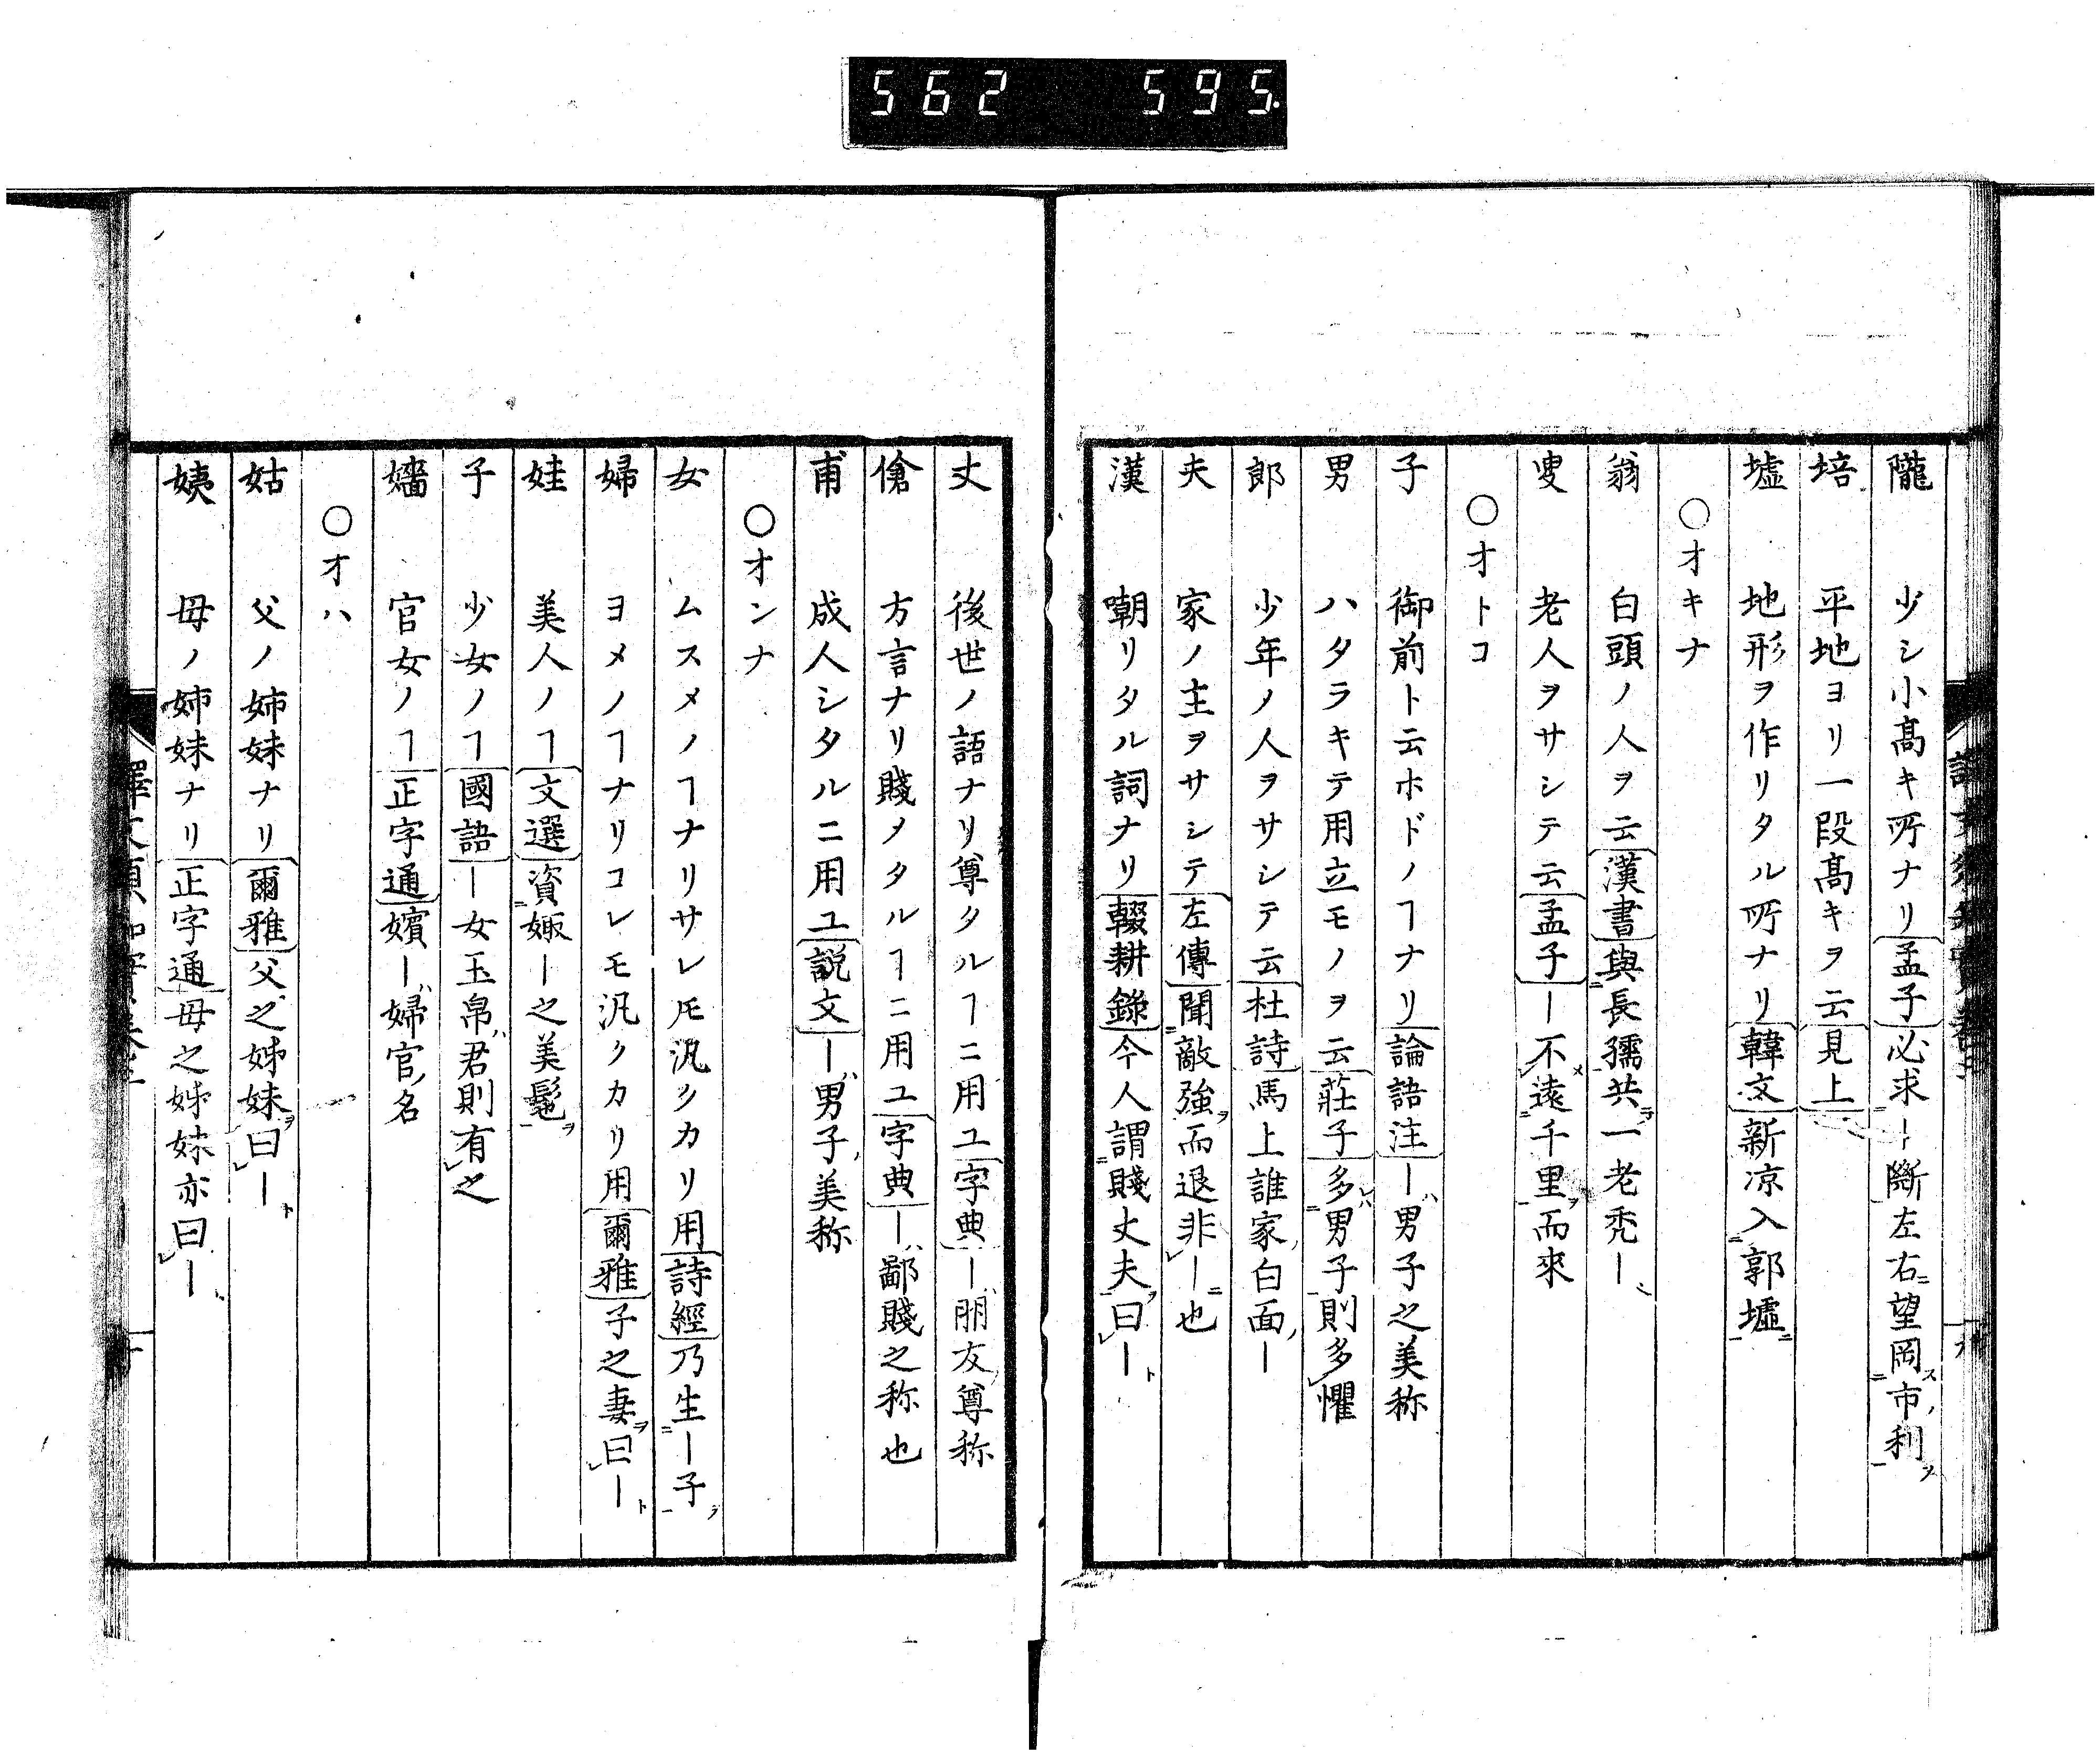 562 595.
隴 少シ小髙キ所ナリ孟子必求ー斷左右望岡市利
培 平地ヨリ一段髙キヲ云見上
墟 地形ヲ作リタル所ナリ韓文新凉入郭墟
〇オキナ
翁 白頭ノ人ヲ云漢書與長孺共一老禿ー
叟 老人ヲサシテ云孟子ー不遠千里而來
〇オトコ
子 御前ト云ホドノヿナリ論語注ー男子之美称
男 ハタラキテ用立モノヲ云莊子多男子則多懼
郎 少年ノ人ヲサシテ云杜詩馬上誰家白面ー
夫 家ノ主ヲサシテ左傳聞敵強而退非ー也
漢 嘲リタル詞ナリ輟耕錄今人謂賤丈夫曰ー
丈 後世ノ語ナリ尊タルヿニ用ユ字典ー朋友尊称
傖 方言ナリ賤メタルヿニ用ユ字典ー鄙賤之称也
甫 成人シタルニ用ユ説文ー男子美称
〇オンナ
女 ムスメノヿナリサレ𪜈汎クカリ用詩經乃生ー子
婦 ヨメノヿナリコレモ汎クカリ用爾雅子之妻曰ー
娃 美人ノヿ文選資娵ー之美髦
子 少女ノヿ國語ー女玉帛君則有之
嬙 官女ノヿ正字通嬪ー婦官名
〇オハ
姑 父ノ姉妹ナリ爾雅父之姊妹曰ー
姨 母ノ姉妹ナリ正字通母之姊妹亦曰ー